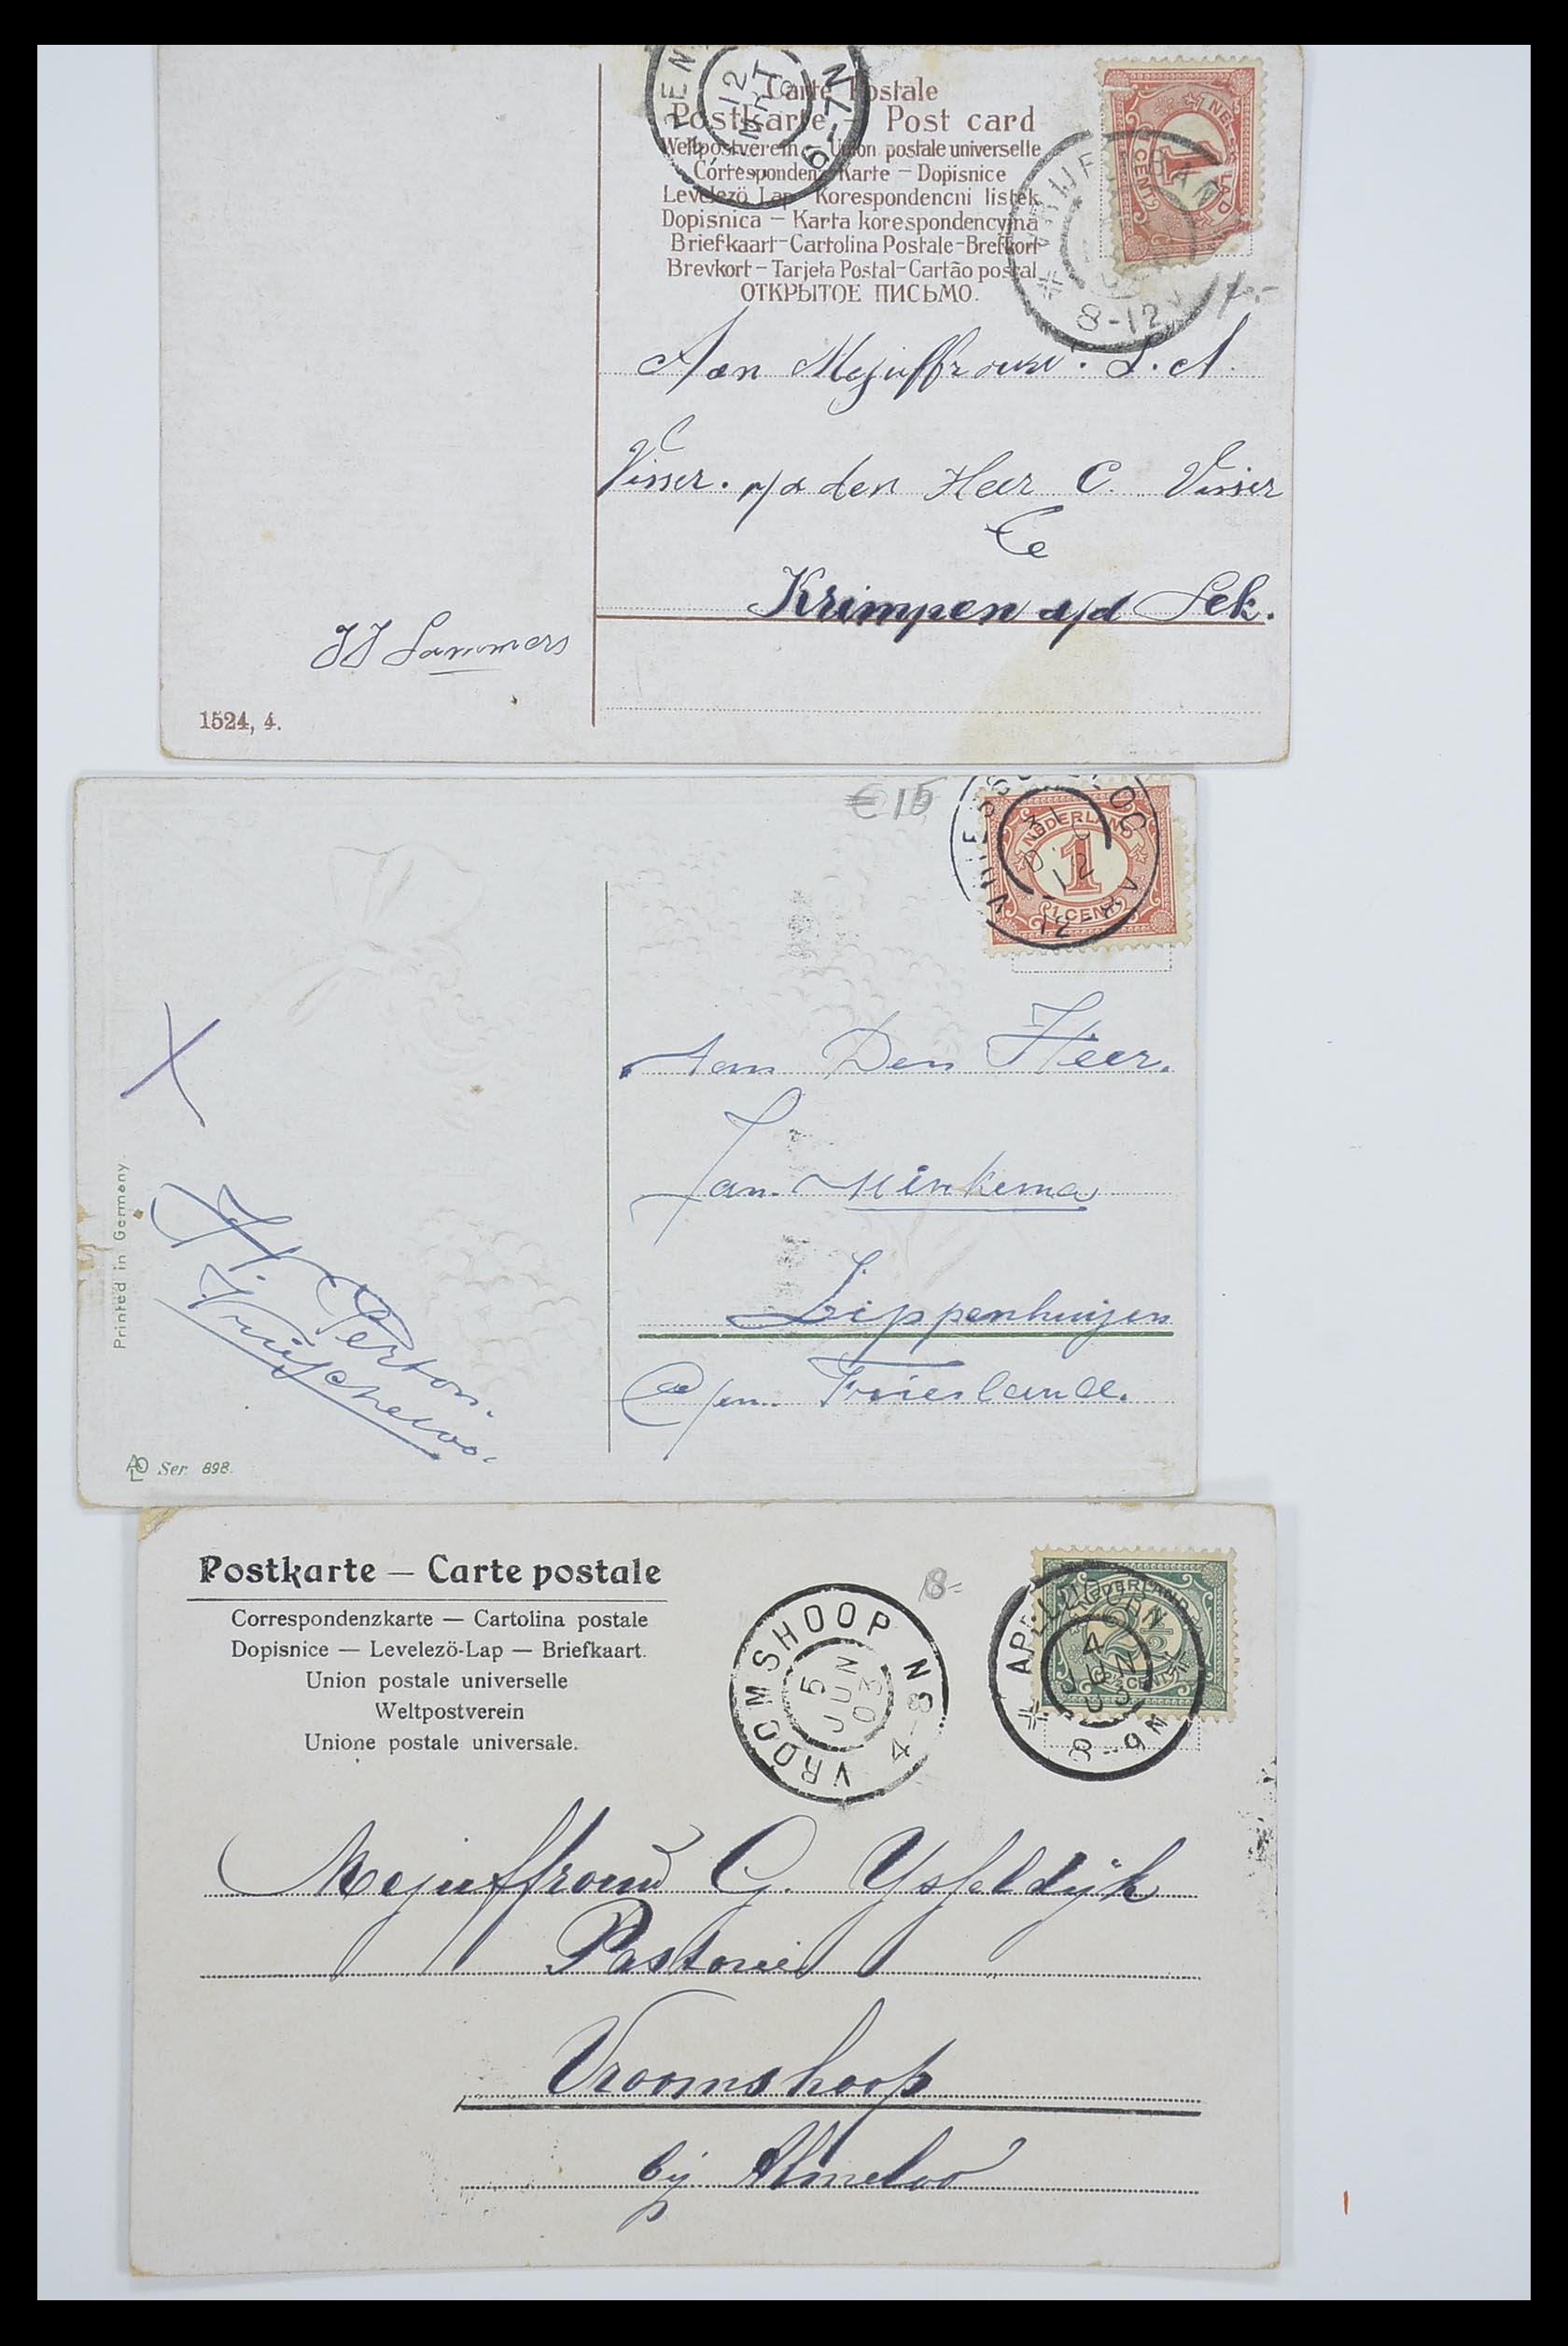 PEN
12
MRT
6-7N
Carte Postale
Postkarte – Post card
Weltpostverein – Union postale universelle
Correspondenz-Karte – Dopisnice
Levelezö Lap – Korespondencni listek
Dopisnica – Karta korespondencyjna
Briefkaart – Cartolina Postale – Brefkort
Brevkort – Tarjeta Postal – Cartão postal
ОТКРЫТОЕ ПИСЬМО.
1
CENT
8-12V
Aan Mejuffrouw. L. A.
Visser. p/a den Heer C. Visser
Te
Krimpen a/d Lek.
JJ Lammers
1524, 4.
€15
NEDERLAND
1
1 CENT
31
12
Aan Den Heer.
Jan. Minkema
Lippenhuijen
Friesland.
Printed in Germany.
Ser. 898.
Postkarte — Carte postale
Correspondenzkarte — Cartolina postale
Dopisnice — Levelezö-Lap — Briefkaart.
Union postale universelle
Weltpostverein
Unione postale universale.
8-
VROOMSHOOP
5
JUN
03
4-8N
NEDERLAND
2½
CENT
APELDOORN
4
JUN
03
8-9N
Mejuffrouw G. Ysseldijk
Pastorie
Vroomshoop
bij Almeloo